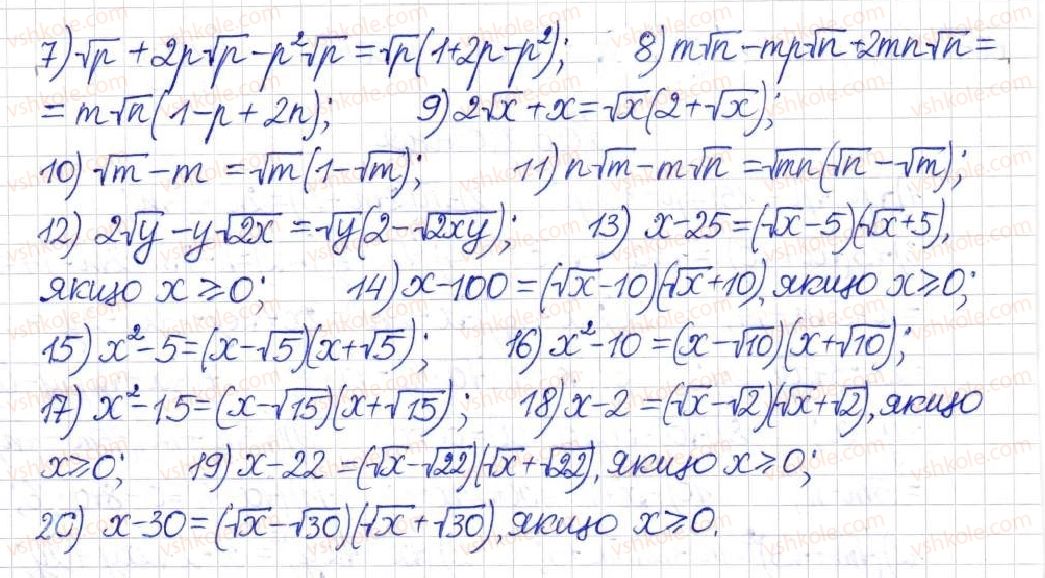 7) √p + 2p√p - p²√p = √p(1+2p-p²); 8) m√n - mp√n + 2mn√n =
= m√n(1-p+2n); 9) 2√x + x = √x(2+√x);
10) √m - m = √m(1-√m); 11) n√m - m√n = √mn(√n - √m);
12) 2√y - y√2x = √y(2-√2xy); 13) x-25 = (√x-5)(√x+5),
якщо x ≥ 0; 14) x-100 = (√x-10)(√x+10), якщо x ≥ 0;
15) x²-5 = (x-√5)(x+√5); 16) x²-10 = (x-√10)(x+√10);
17) x²-15 = (x-√15)(x+√15); 18) x-2 = (√x-√2)(√x+√2), якщо
x ≥ 0; 19) x-22 = (√x-√22)(√x+√22), якщо x ≥ 0;
20) x-30 = (√x-√30)(√x+√30), якщо x ≥ 0.